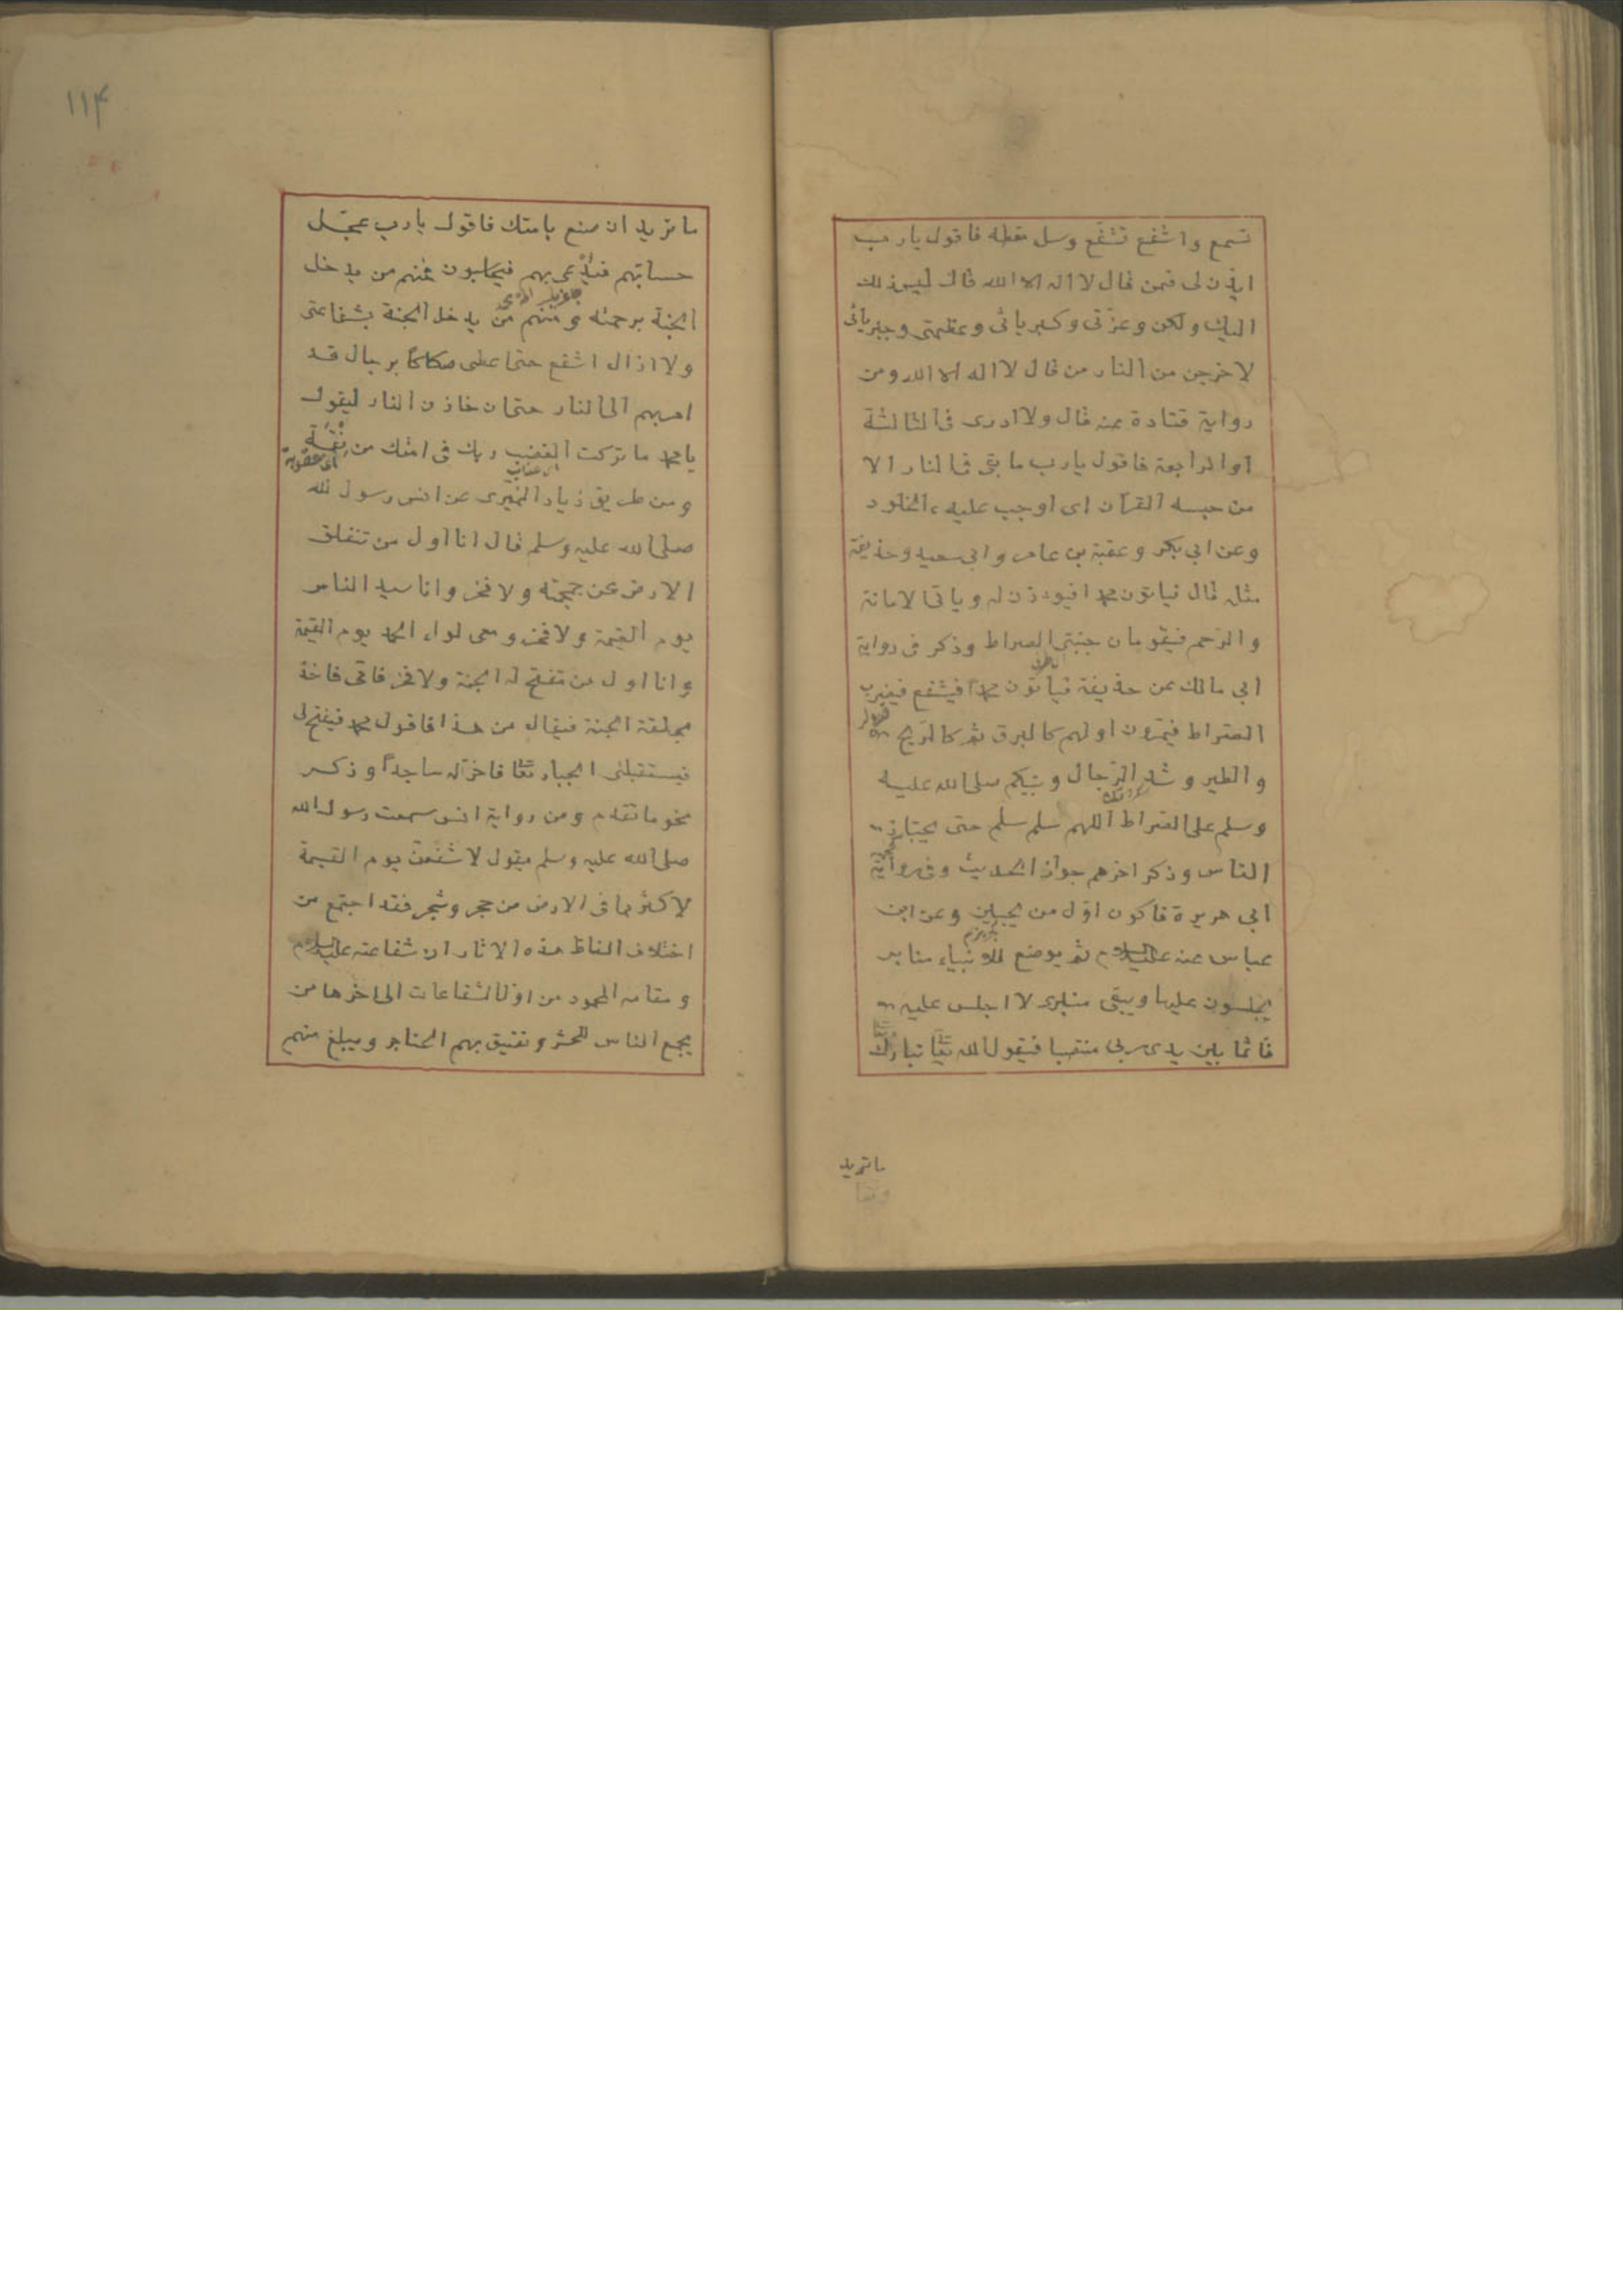 تسمع واشفع تشفع وسل تعطه فاقول يا رب
ايذن لى فيمن قال لا اله الا الله قال ليس ذلك
اليك ولكن وعزتى وكبريائى وعظمتى وجبريائى
لاخرجن من النار من قال لا اله الا الله ومن
رواية قتادة عنه قال ولا ادرى فى الثالثة
او الرابعة فاقول يا رب ما بقى فى النار الا
من حبسه القرآن اى اوجب عليه الخلود
وعن ابى بكر وعقبة بن عامر وابى سعيد وحذيفة
مثله قال فياتون محمدا فيوذن له وياتى الامانة
والرحم فيقومان جنبتى الصراط وذكر فى رواية
ابى مالك عن حذيفة فياتون محمدا فيشفع فيضرب
الصراط فيمرون اولهم كالبرق ثم كالريح
والطير وشد الرجال ونبيكم صلى الله عليه
وسلم على الصراط اللهم سلم سلم حتى يجتاز
الناس وذكر اخرهم جوازا الحديث وفى رواية
ابى هريرة فاكون اول من يجيز وعن ابن
عباس عنه عليه السلام ثم يوضع للانبياء منابر
يجلسون عليها ويبقى منبرى لا اجلس عليه
قائما بين يدى ربى منتصبا فيقول الله تعا تبارك
ما تريد
١١۴
ما تريد ان صنع بامتك فاقول يا رب عجل
حسابهم فيدعى بهم فيحاسبون فمنهم من يدخل
الجنة برحمته ومنهم من يدخل الجنة بشفاعتى
ولا ازال اشفع حتى اعطى صكاكا برجال قد
امر بهم الى النار حتى ان خازن النار ليقول
يا محمد ما تركت لغضب ربك فى امتك من نقمة
اى عقوبة
ومن طريق زياد النميرى عن انس رسول الله
صلى الله عليه وسلم قال انا اول من تنفلق
الارض عن جمجمته ولا فخر وانا سيد الناس
يوم القيمة ولا فخر ومعى لواء الحمد يوم القيمة
وانا اول من تفتح له الجنة ولا فخر فاتى فاخذ
بحلقة الجنة فيقال من هذا فاقول محمد فيفتح لى
فيستقبلنى الجبار تعا فاخر له ساجدا وذكر
نحو ما تقدم ومن رواية انس سمعت رسول الله
صلى الله عليه وسلم يقول لاشفعن يوم القيمة
لاكثر مما فى الارض من حجر وشجر فقد اجتمع من
اختلاف الفاظ هذه الاثار ان شفاعته عليه السلام
ومقامه المحمود من اول الشفاعات الى اخرها من
يجمع الناس للحشر وتضيق بهم الحناجر ويبلغ منهم